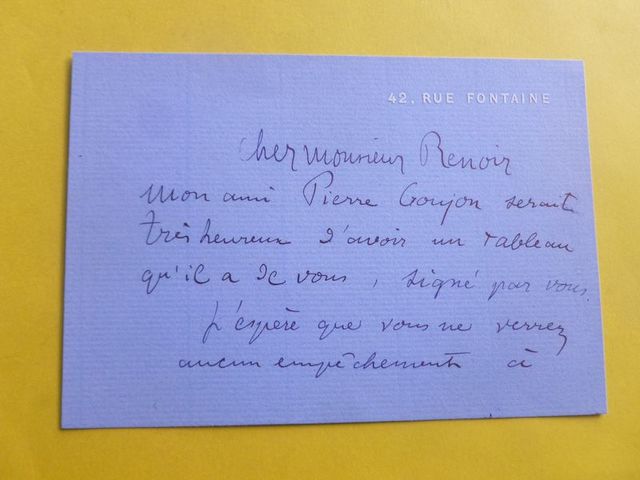 42, RUE FONTAINE
Cher Monsieur Renoir
Mon ami Pierre Goujon serait
très heureux d'avoir un tableau
qu'il a de vous, signé par vous.
J'espère que vous ne verrez
aucun empêchement à